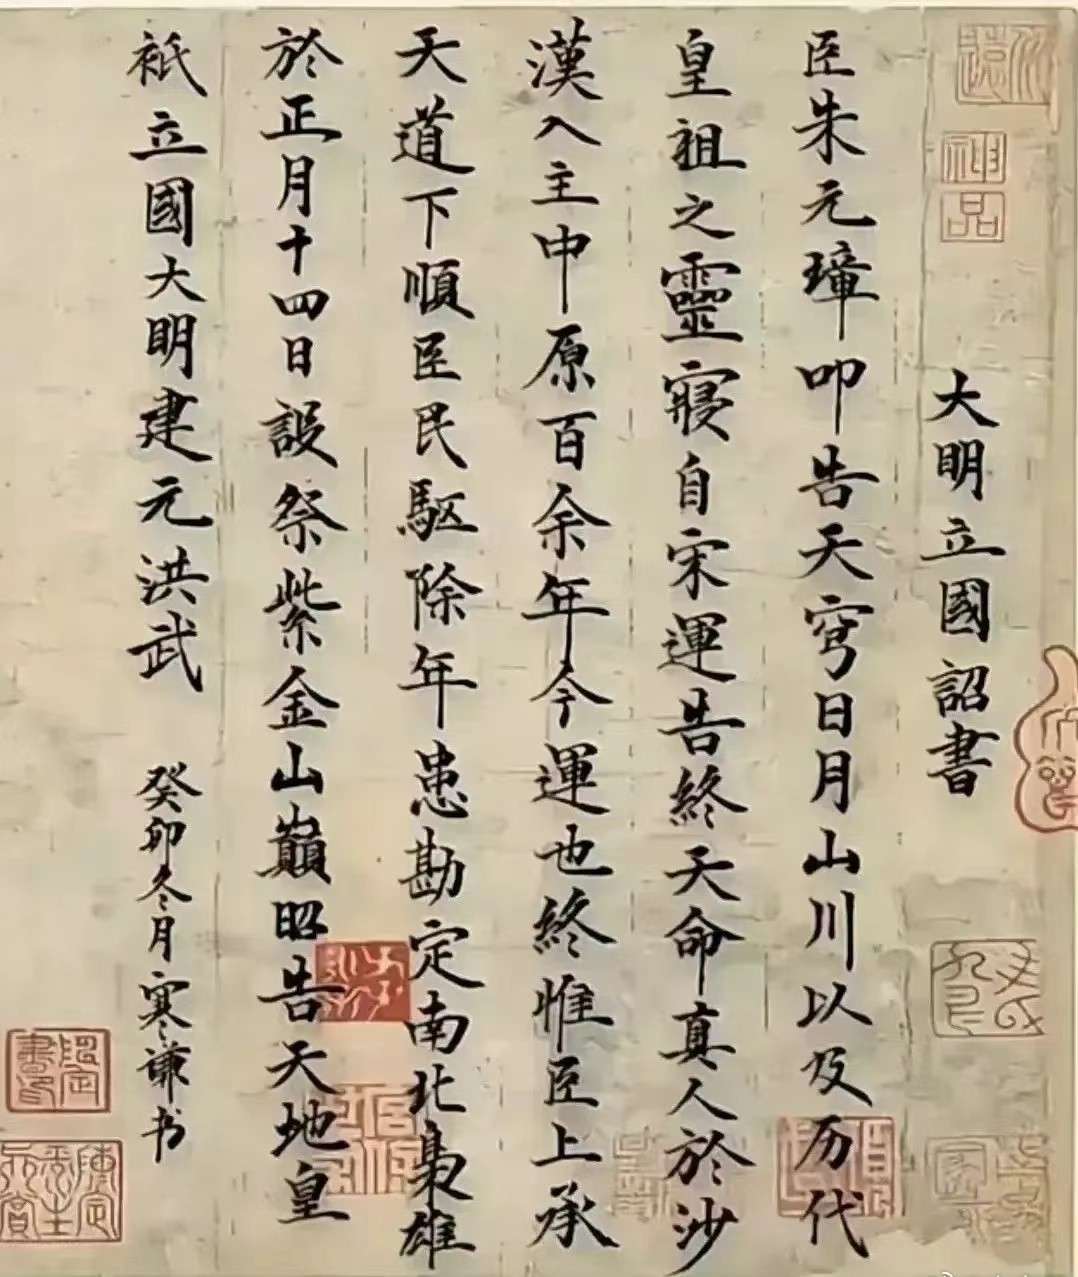 大明立國詔書
臣朱元璋叩告天穹日月山川以及历代
皇祖之靈寢自宋運告終天命真人於沙
漠入主中原百余年今運也終惟臣上承
天道下順臣民驅除年患勘定南北梟雄
於正月十四日設祭紫金山巔昭告天地皇
祇立國大明建元洪武
癸卯冬月寒謙书
神品